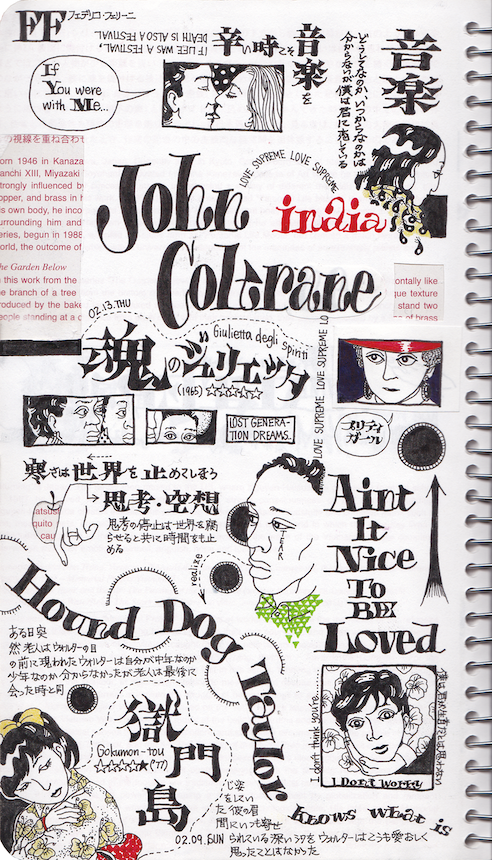 FF フェデリコ・フェリーニ
IF LIFE WAS A FESTIVAL,
DEATH IS ALSO A FESTIVAL.
If
You were
with Me...
音楽を
そして時に
辛い
音楽
どうしてなのか、いつからなのかは
分からないが僕は君に恋している
の視線を重ね合わせ
orn 1946 in Kanaza
anchi XIII, Miyazaki
trongly influenced by
opper, and brass in h
s own body, he inco
urrounding him and
eries, begun in 1988
orld, the outcome of
he Garden Below
this work from the
e branch of a tree
roduced by the bake
eople standing at a c
LOVE SUPREME LOVE SUPREME
John
india
Coltrane
ontally like
que texture
stand two
of brass
02.13.THU
魂のジュリエッタ
Giulietta degli spiriti
(1965) ☆☆☆☆☆
LOVE SUPREME LOVE SUPREME LO
LOST GENERA-
TION DREAMS..
プリティ
ガール
寒さは世界を止めてしまう
思考・空想
思考の停止は世界を腐
らせると共に時間をも止
める
atsus
quito
cau
TEAR
realize
Aint
It
Nice
To
BE
Loved
Hound Dog Taylor
ある日突
然老人はウォルターの目
の前に現われたウォルターは自分が中年なのか
少年なのか分からなかったが老人は最後に
会った時と同
獄門島
Gokumon-tou
☆☆☆☆★('77)
I don't think you're...
I Don't worry
02.09.SUN
じ姿
をしてい
た彼の眉
間にいつも寄せ
られている深いシワをウォルターはこうも愛おしく
思ったことはなかった
knows what is